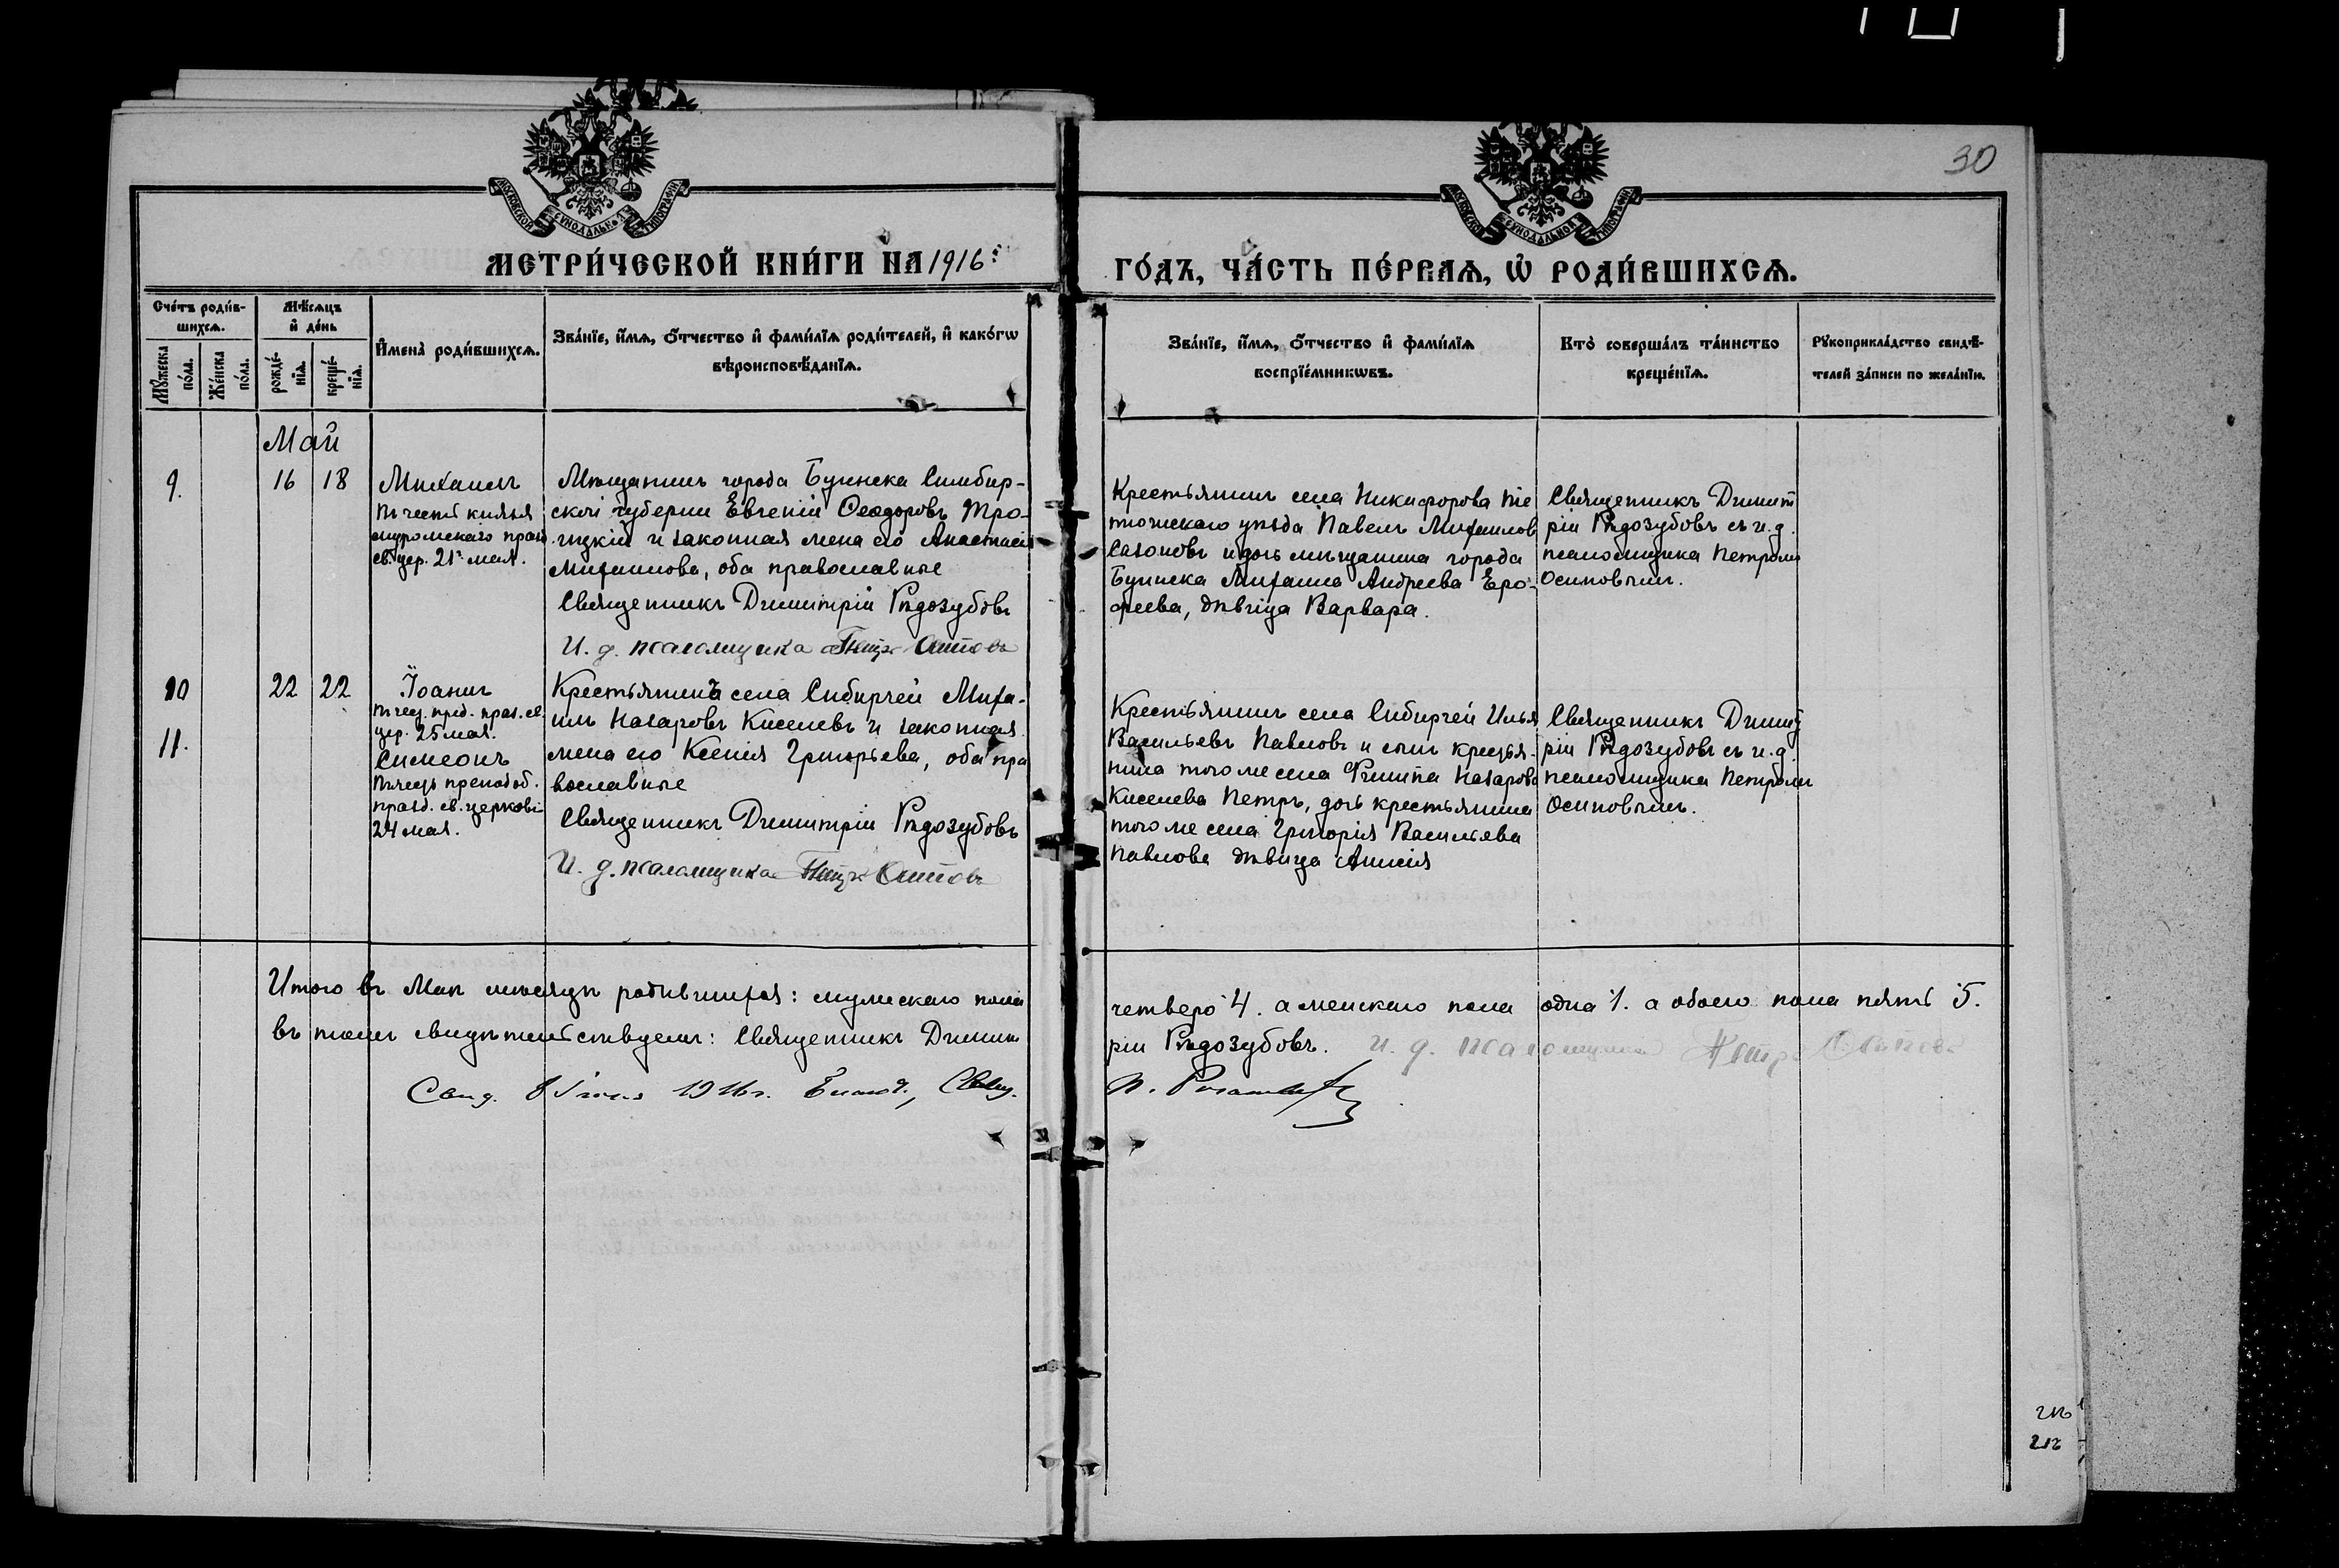 30
МОСКОВСКОЙ СѴНОДАЛЬНОЙ ТИПОГРАФІИ
МОСКОВСКОЙ СѴНОДАЛЬНОЙ ТИПОГРАФІИ
МЕТРИ́ЧЕСКОЙ КНИ́ГИ НА 1916 г.
ГО́ДЪ, ЧА́СТЬ ПЕ́РВАѦ, Ѡ҆ РОДИ́ВШИХСѦ.
Сче́тъ роди́в-
шихсѧ.
Мѣ́сѧцъ
и҆ де́нь
Мꙋ́жеска по́ла.
Же́нска по́ла.
рожде́-
нїѧ.
креще́-
нїѧ.
И҆мена̀ роди́вшихсѧ.
Зва́нїе, и҆́мѧ, ѻ҆́тчество и҆ фами́лїѧ роди́телей, и҆ како́гѡ
вѣроисповѣ́данїѧ.
Зва́нїе, и҆́мѧ, ѻ҆́тчество и҆ фами́лїѧ
воспрїе́мникѡвъ.
Кто̀ соверша́лъ та́инство
креще́нїѧ.
Рꙋкоприкла́дство свидѣ́-
телей за́писи по жела́нїю.
Май
9.
16 18
Михаилъ
въ честь князя
муромскаго празд.
св. цер. 21го мая.
Мѣщанинъ города Буинска Симбир-
ской губерніи Евгеній Ѳеодоровъ Тро-
ицкій и законная жена его Анастасія
Михаилова, оба православные
Священникъ Димитрій Рѣдозубовъ
И. д. псаломщика Петръ Осиповъ
Крестьянинъ села Никифорова Те
тюшскаго уѣзда Павелъ Михаиловъ
Сазоновъ и дочь мѣщанина города
Буинска Михаила Андреева Еро-
феева, дѣвица Варвара.
Священникъ Димит
рій Рѣдозубовъ съ и. д.
псаломщика Петромъ
Осиповымъ.
10
11.
22 22
Іоаннъ
въ чес. пред. праз. св.
цер. 25 мая.
Симеонъ
въ честь преподоб.
празд. св. церковію
24 мая.
Крестьянинъ села Сибирчей Миха-
илъ Назаровъ Киселевъ и законная
жена его Ксенія Григорьева, оба пра
вославные
Священникъ Димитрій Рѣдозубовъ
И. д. псаломщика Петръ Осиповъ
Крестьянинъ села Сибирчей Илья
Васильевъ Павловъ и сынъ крестья-
нина того же села Филипа Назарова
Киселева Петръ, дочь крестьянина
того же села Григорія Васильева
Павлова дѣвица Анисія
Священникъ Димит
рій Рѣдозубовъ съ и. д.
псаломщика Петромъ
Осиповымъ.
Итого въ Маѣ мѣсяцѣ родившихся: мужескаго пола
четверо 4. а женскаго пола одна 1. а обоего пола пять 5.
въ томъ свидѣтельствуемъ: Священникъ Димит
рій Рѣдозубовъ. И. д. псаломщика Петръ Осиповъ
Свид. 8 іюня 1916 г. Благоч., Свящ.